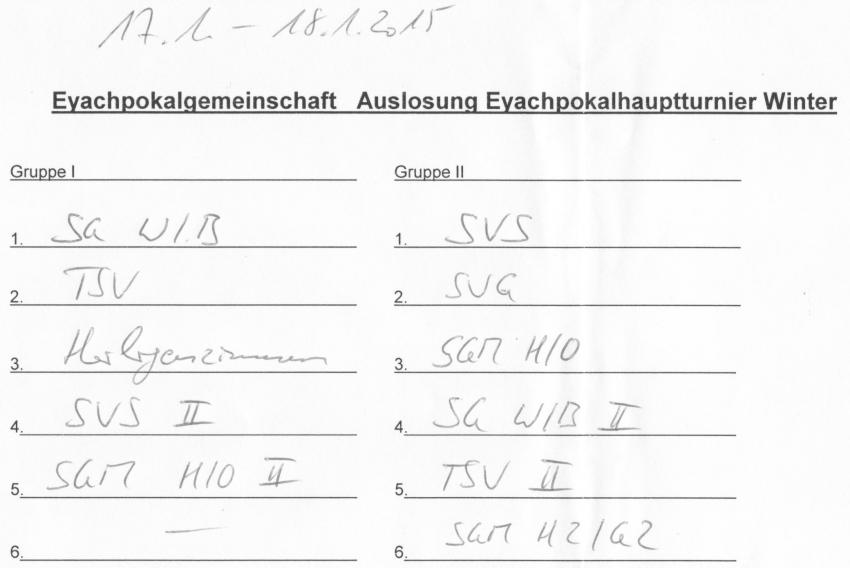 17.1. - 18.1.2015
Eyachpokalgemeinschaft Auslosung Eyachpokalhauptturnier Winter
Gruppe I
1. SG W/B
2. TSV
3. Heiligenzimmern
4. SVS II
5. SGM H/O II
6. —
Gruppe II
1. SVS
2. SVG
3. SGM H/O
4. SG W/B II
5. TSV II
6. SGM HZ/GZ